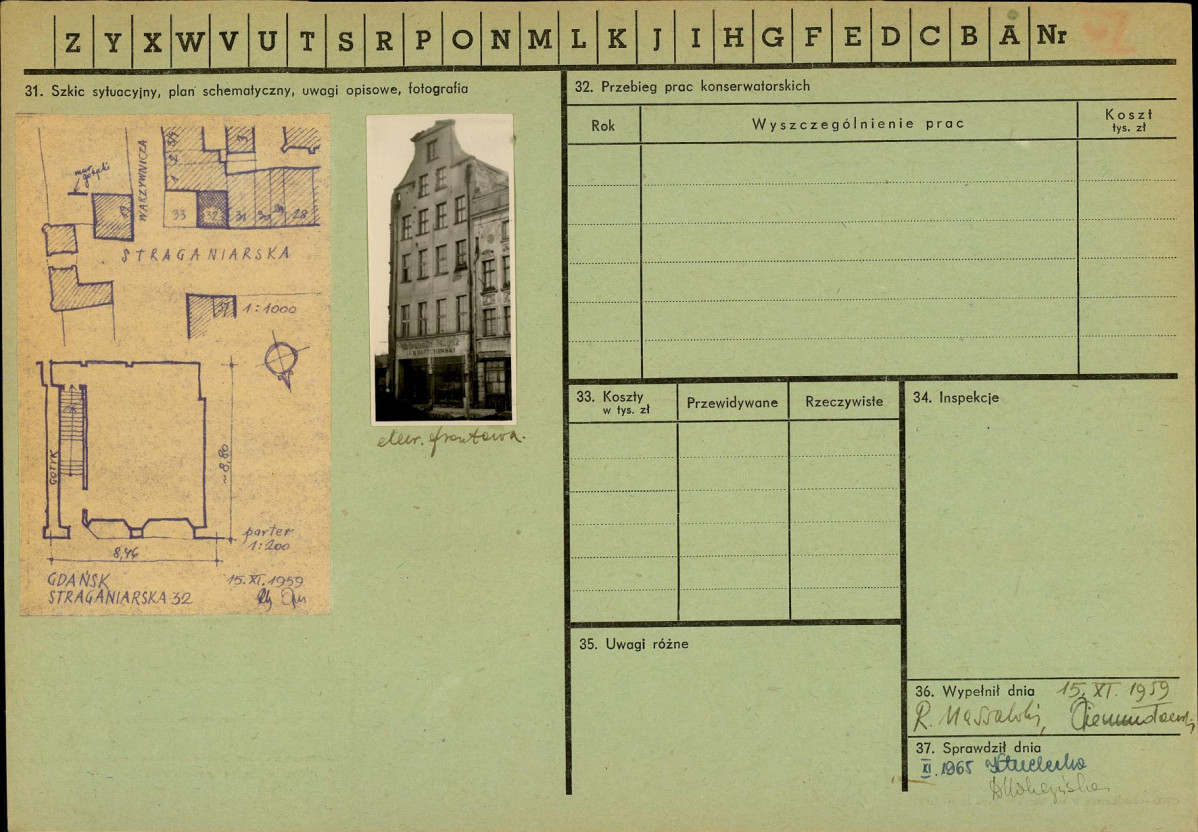 Z Y X W V U T S R P O N M L K J I H G F E D C B A Nr
31. Szkic sytuacyjny, plan schematyczny, uwagi opisowe, fotografia
mur gotycki
WARZYWNICZA
1 2 3/4
3
12
33 32 31 30 29 28
STRAGANIARSKA
37
1:1000
GOTYK
~8,80
parter
1:200
8,46
GDAŃSK 15.XI.1959
STRAGANIARSKA 32
elew. frontowa.
32. Przebieg prac konserwatorskich
Rok
Wyszczególnienie prac
Koszt
tys. zł
33. Koszty
w tys. zł
Przewidywane
Rzeczywiste
34. Inspekcje
35. Uwagi różne
36. Wypełnił dnia 15. XI. 1959
R. Massalski,
37. Sprawdził dnia
XI. 1965